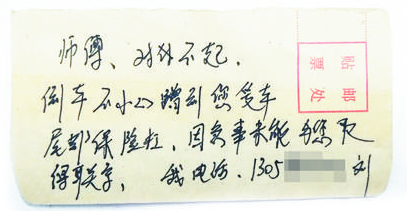 师傅、对外不起.
倒车不小心蹭到您爱车
尾部保险杠,因急事未能与您取
得联系,我电话.1305 刘
贴邮
票处